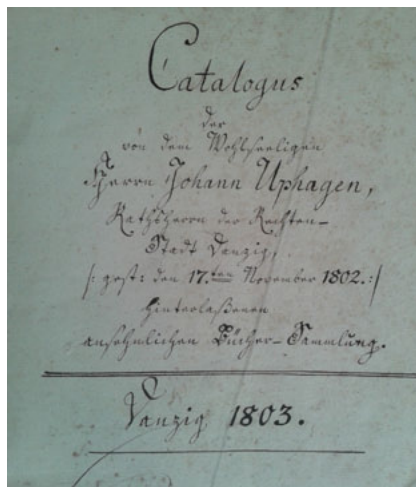 Catalogus
der
von dem Wohlseeligen
Herrn Johann Uphagen,
Rathsherrn der Rechten-
Stadt Danzig,
/: gest: den 17.ten November 1802. :/
hinterlaßenen
ansehnlichen Bücher-Sammlung.
Danzig 1803.